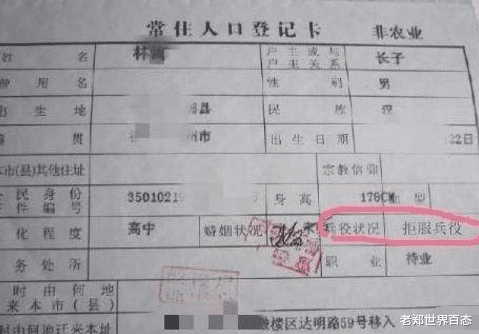 常住人口登记卡 非农业
姓名 林 户主或与户主关系 长子
曾用名 性别 男
出生地 县 民族 汉
籍贯 州市 出生日期 22日
本市(县)其他住址 宗教信仰
公民身份证件编号 35010219 身高 176CM 血型
文化程度 高中 婚姻状况 未 兵役状况 拒服兵役
服务处所 职业 待业
何时由何地迁来本市(县)
鼓楼区达明路59号移入
老郑世界百态